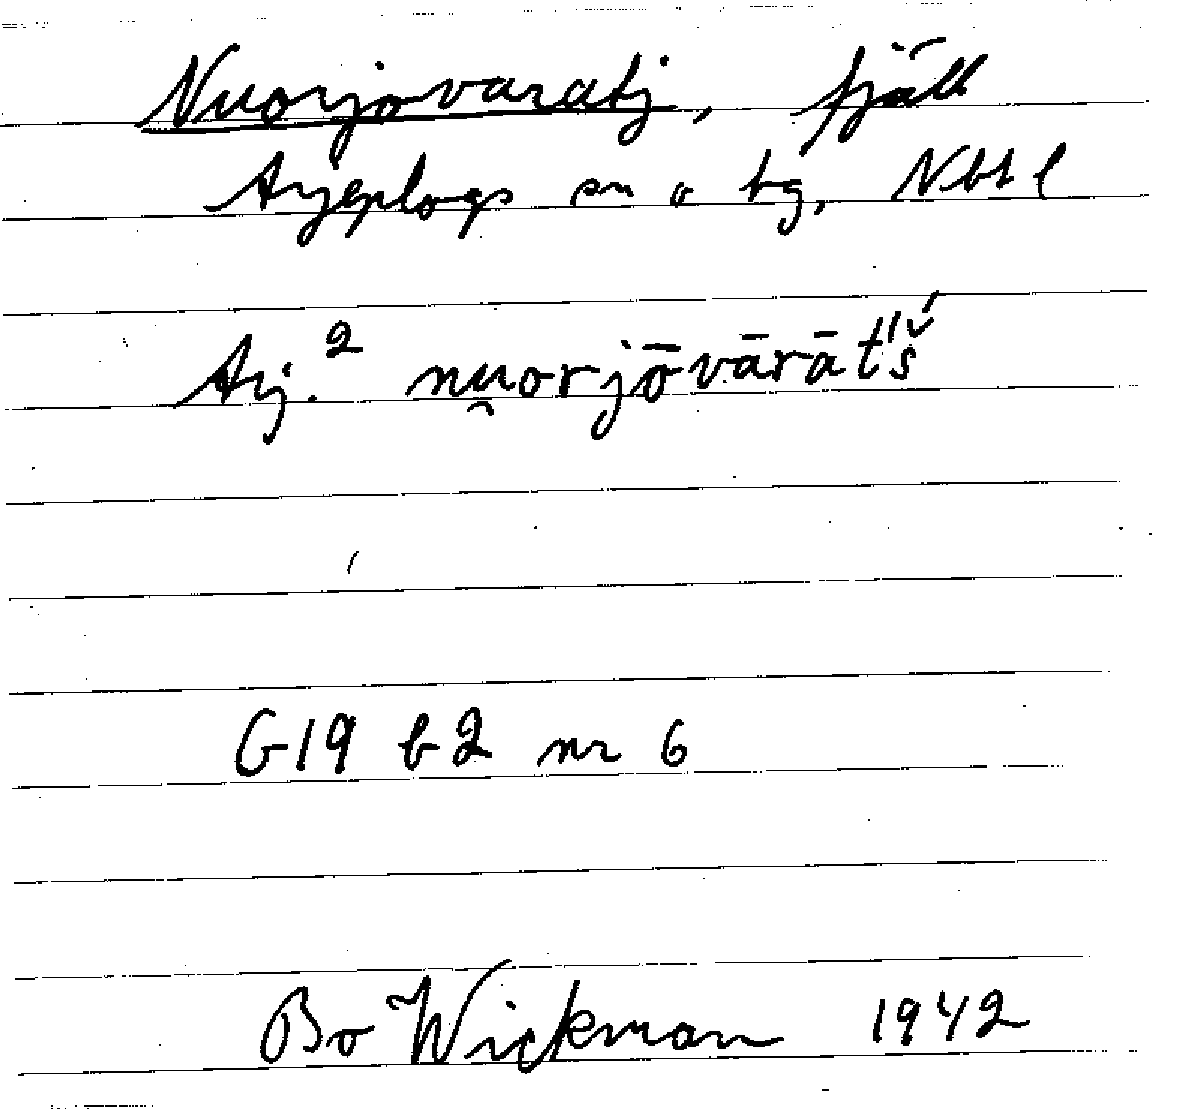 Nuorjovaratj, fjäll
Arjeplogs sn o tg, Nbt l
Arj.² nu̯orjō̇vārāt́'š́
G19 b2 nr 6
Bo Wickman 1942